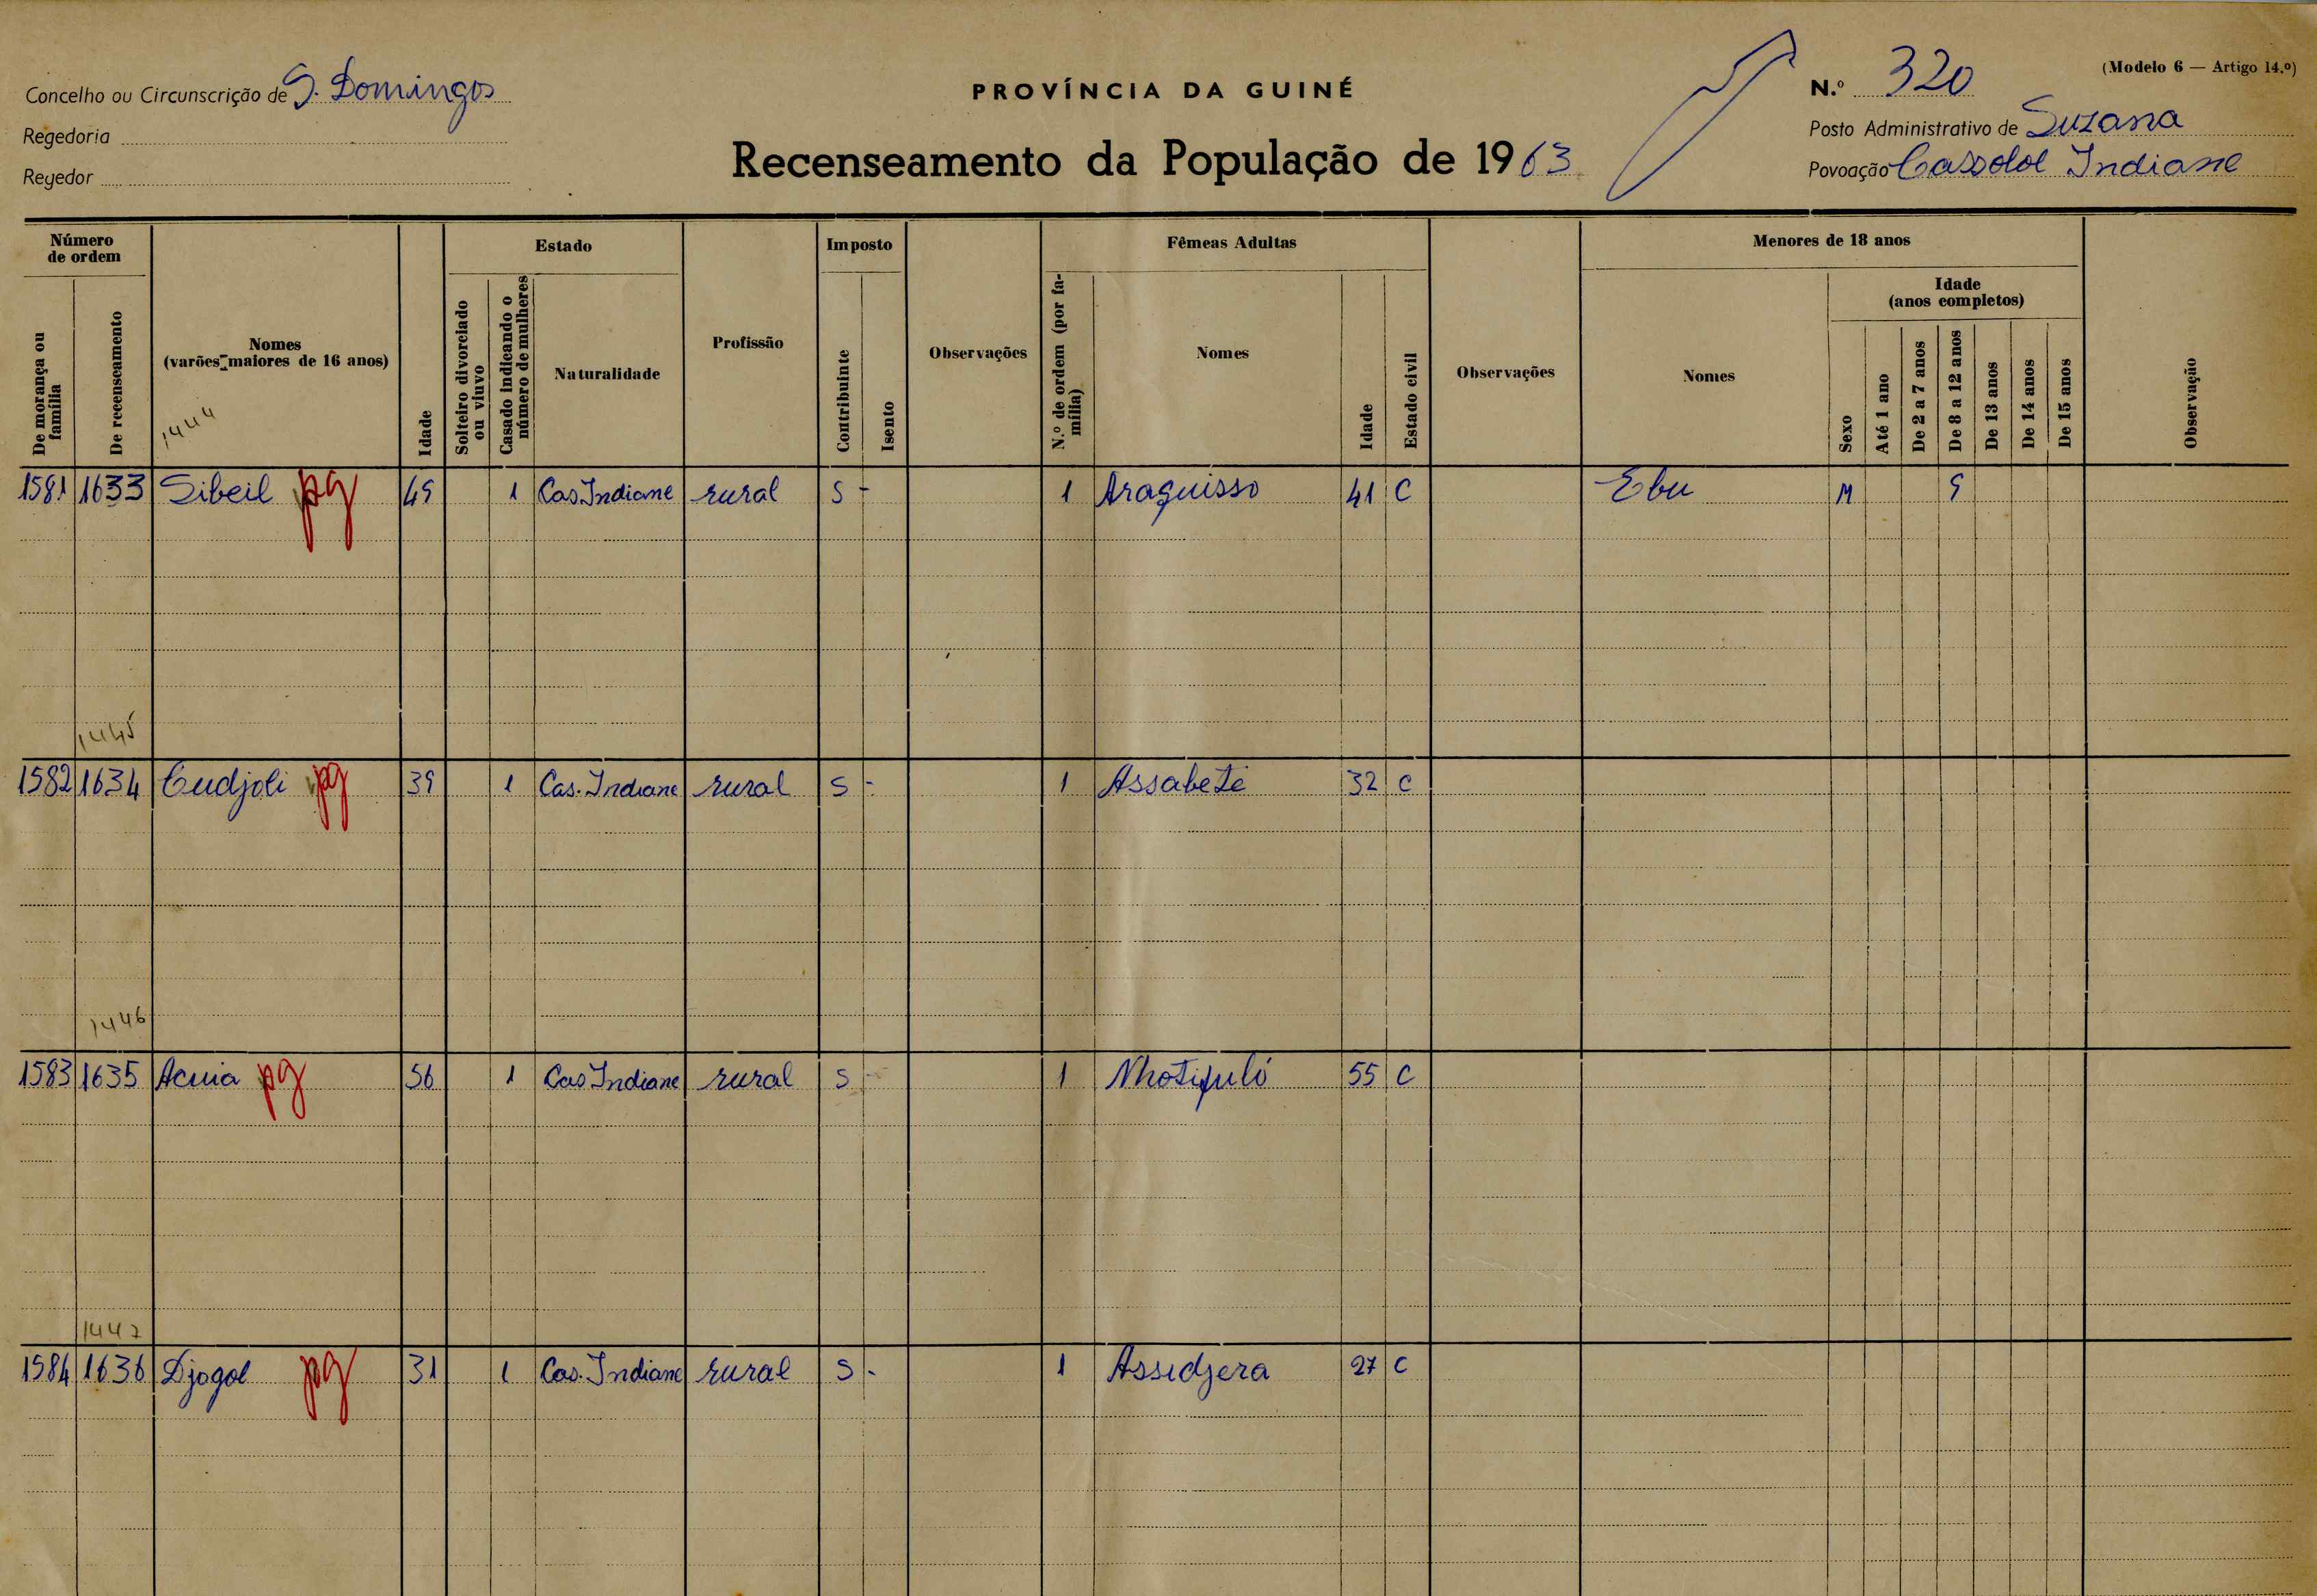 (Modelo 6 — Artigo 14.º)
Concelho ou Circunscrição de S. Domingos
PROVÍNCIA DA GUINÉ
N.º 320
Regedoria
Posto Administrativo de Suzana
Recenseamento da População de 1963
Regedor
Povoação Cassolol Indiane
Número de ordem
De morança ou família
De recenseamento
Nomes
(varões maiores de 16 anos)
1444
Idade
Estado
Solteiro divorciado ou viuvo
Casado indicando o número de mulheres
Naturalidade
Profissão
Imposto
Contribuinte
Isento
Observações
Fêmeas Adultas
N.º de ordem (por família)
Nomes
Idade
Estado civil
Observações
Menores de 18 anos
Nomes
Sexo
Idade
(anos completos)
Até 1 ano
De 2 a 7 anos
De 8 a 12 anos
De 13 anos
De 14 anos
De 15 anos
Observação
1581 1633 Sibeil pg 49 1 Cas Indiane rural S - 1 Araguisso 41 C Ebu M 9
1445
1582 1634 Cudjoli pg 39 1 Cas. Indiane rural S - 1 Assabete 32 C
1446
1583 1635 Acuia pg 56 1 Cas Indiane rural S - 1 55 C
1447
1584 1636 Djogol pg 31 1 Cas. Indiane rural S - 1 Assidjera 27 C